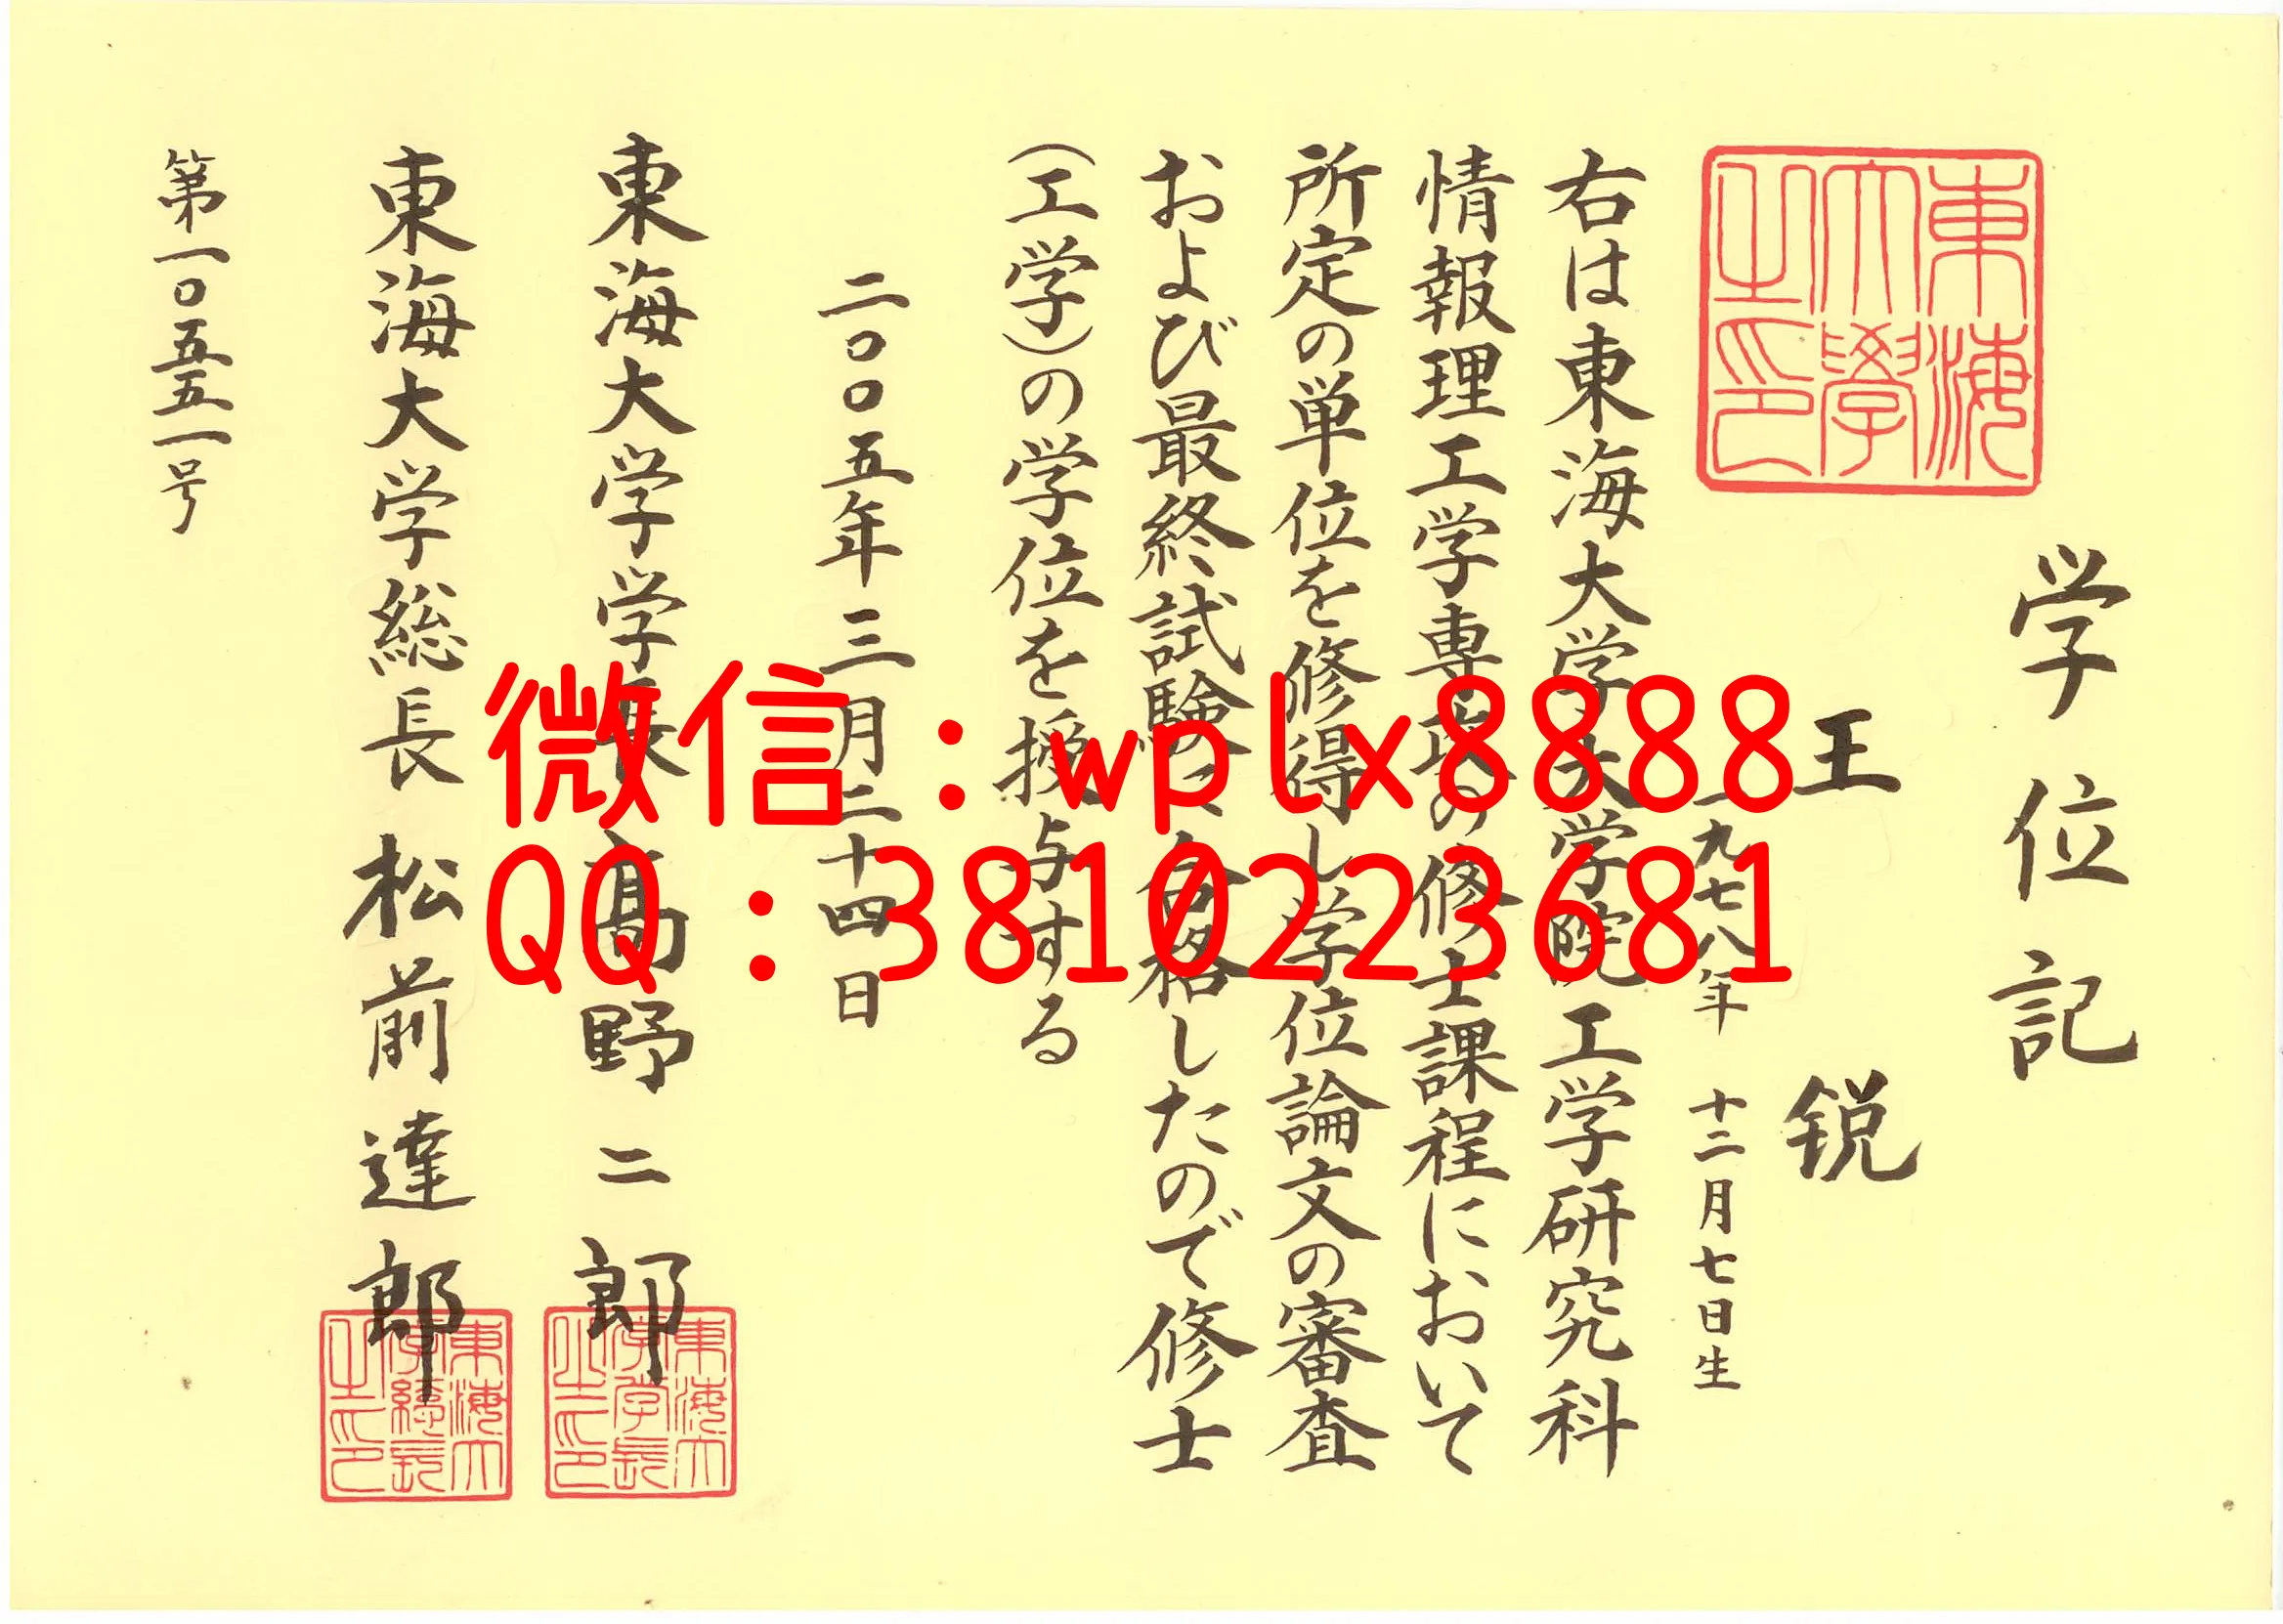 学位記
東海
大學
之印
王 锐
一九七八年 十二月七日生
右は東海大学大学院工学研究科
情報理工学専攻の修士課程において
所定の単位を修得し学位論文の審査
および最終試験に合格したので修士
(工学)の学位を授与する
二〇〇五年三月二十四日
東海大学学長 高野二郎
東海大
学学長
之印
東海大学総長 松前達郎
東海大
学総長
之印
第一〇五五一号
微信：wplx8888
QQ：3810223681